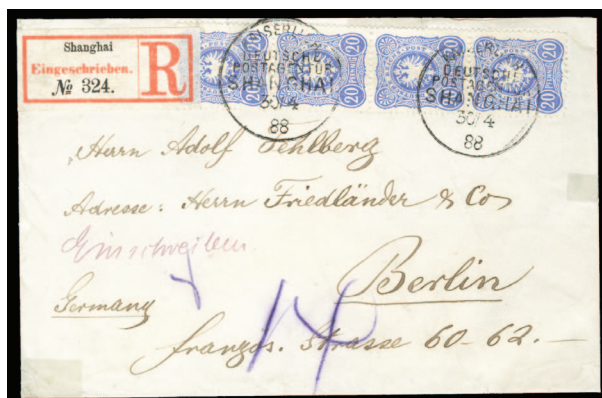 Shanghai
Eingeschrieben.
№ 324.
R
20 20 20 20 20
KAISERLICH
DEUTSCHE
POSTAGENTUR
SHANGHAI
30/4
88
KAISERLICH
DEUTSCHE
POSTAGENTUR
SHANGHAI
30/4
88
Herrn Adolf Fehlberg
Adresse: Herrn Friedländer & Co
Einschreiben.
Berlin
Germany
französ. Strasse 60-62.—